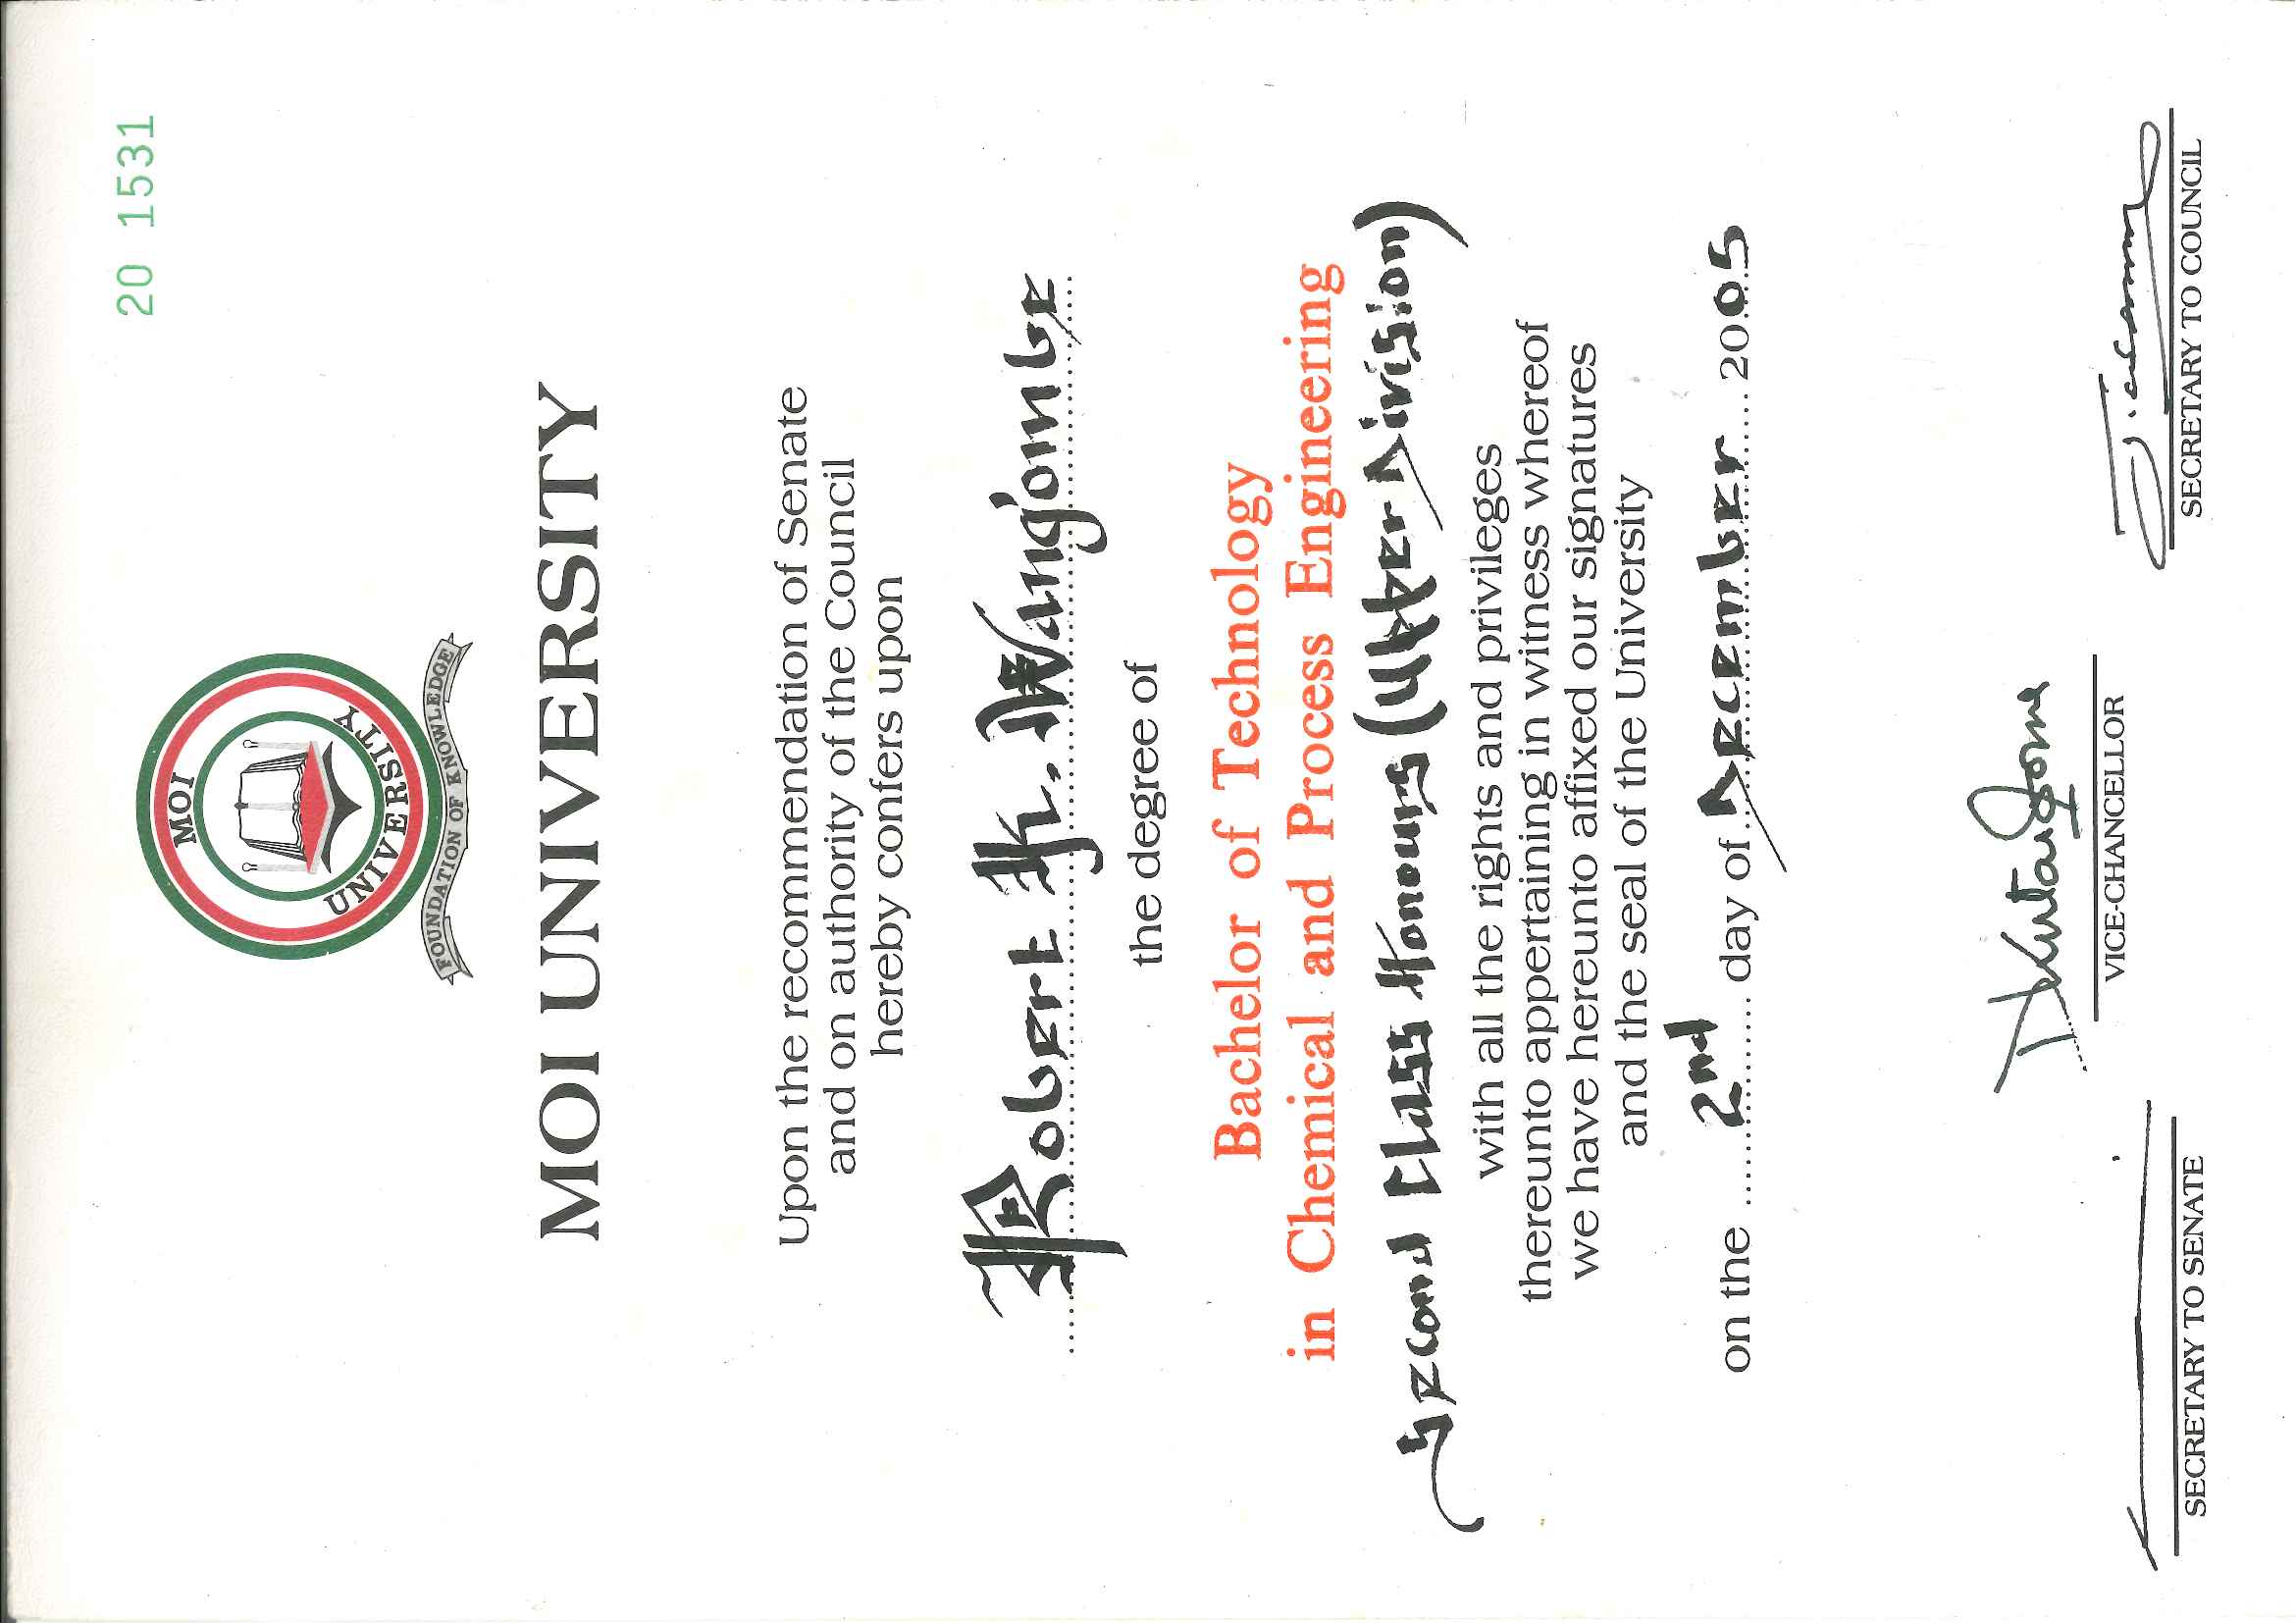 20 1531
MOI
UNIVERSITY
FOUNDATION OF KNOWLEDGE
MOI UNIVERSITY
Upon the recommendation of Senate
and on authority of the Council
hereby confers upon
Robert K. Wang'ombe
the degree of
Bachelor of Technology
in Chemical and Process Engineering
Second Class Honours (Upper Division)
with all the rights and privileges
thereunto appertaining in witness whereof
we have hereunto affixed our signatures
and the seal of the University
on the 2nd day of December 2005
VICE-CHANCELLOR
SECRETARY TO SENATE
SECRETARY TO COUNCIL